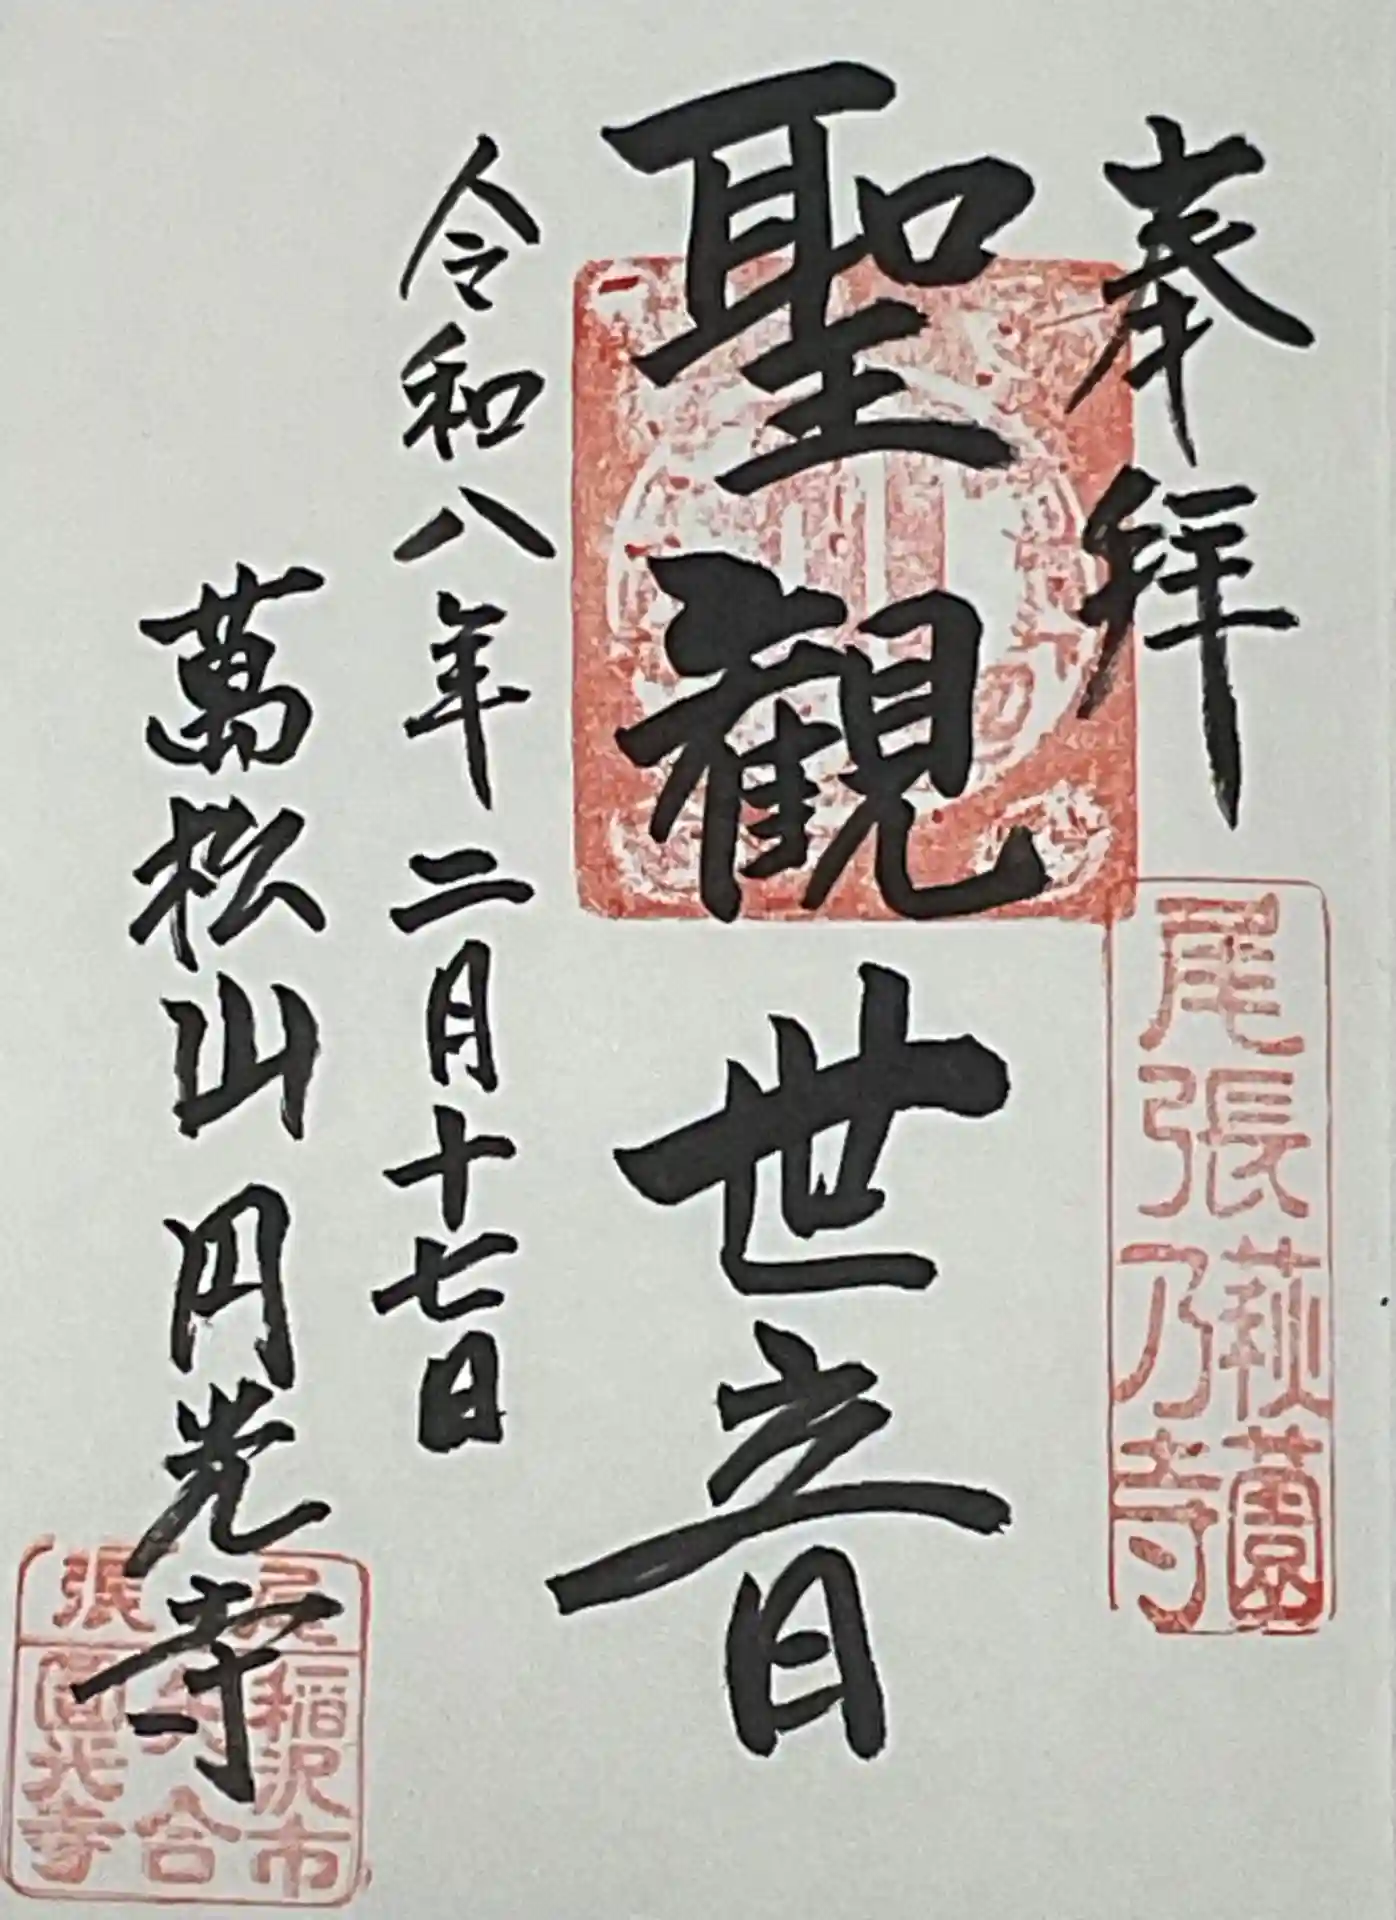 奉拝
尾張乃寺
萩園
聖観世音
令和八年二月十七日
萬松山円光寺
尾張
稲沢市
矢合
圓光寺